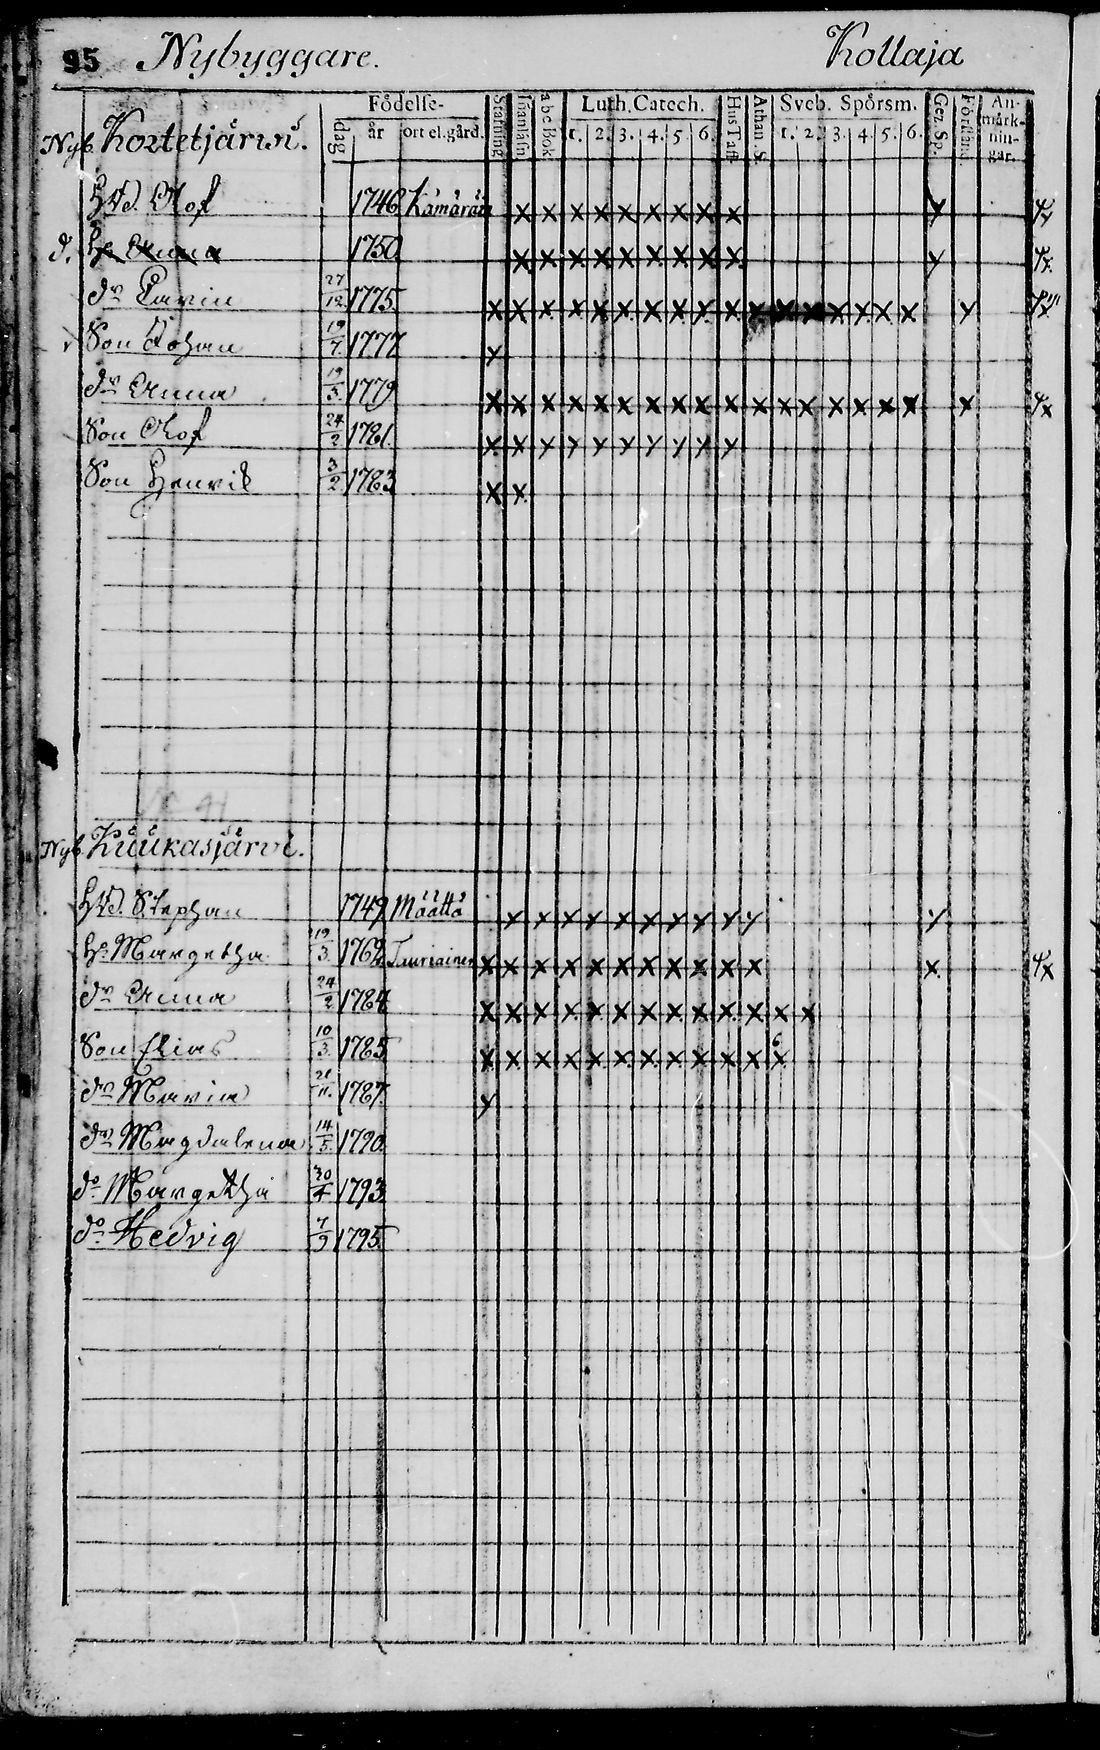 95 Nybyggare. Kollaja
Födelse- Luth. Catech. Sveb. Spörsm. An-
dag år ort el. gård. Stafning Innanläsn abc Bok 1. 2. 3. 4. 5 6. Hus Tafl. Athan. S. 1. 2. 3. 4 5. 6. Gez. Sp. Förstånd. märk-
nin-
gar.
Nyb. Kortetjärwi.
Hd. Olof 1746 Kämäräin x x x x x x x x x y
d. H. Anna 1750. x x x x x x x x x y
dr Carin 27/12 1775. x x x x x x x x x x x x x x x x x y
Son Johan 19/7. 1777 y
dr Anna 19/5. 1779 x x x x x x x x x x x x x x x x x x
Son Olof 24/2 1781. x x y y y y y y y y
Son Henrik 3/2 1783 x x
Nyb. Kuukasjärvi.
Hd. Stephan 1749 Määttä y y y y y y y y y y y
H. Margetha 19/3. 1762 Tauriainen x x x x x x x x x x x x
dr Anna 24/2 1784 x x x x x x x x x x x x x
Son Elias 10/3. 1785 x x x x x x x x x x x 6 x
dr Maria 21/11. 1787. y
dr Magdalena 14/5. 1790.
do Margetha 30/4 1793
do Hedvig 7/9 1795.